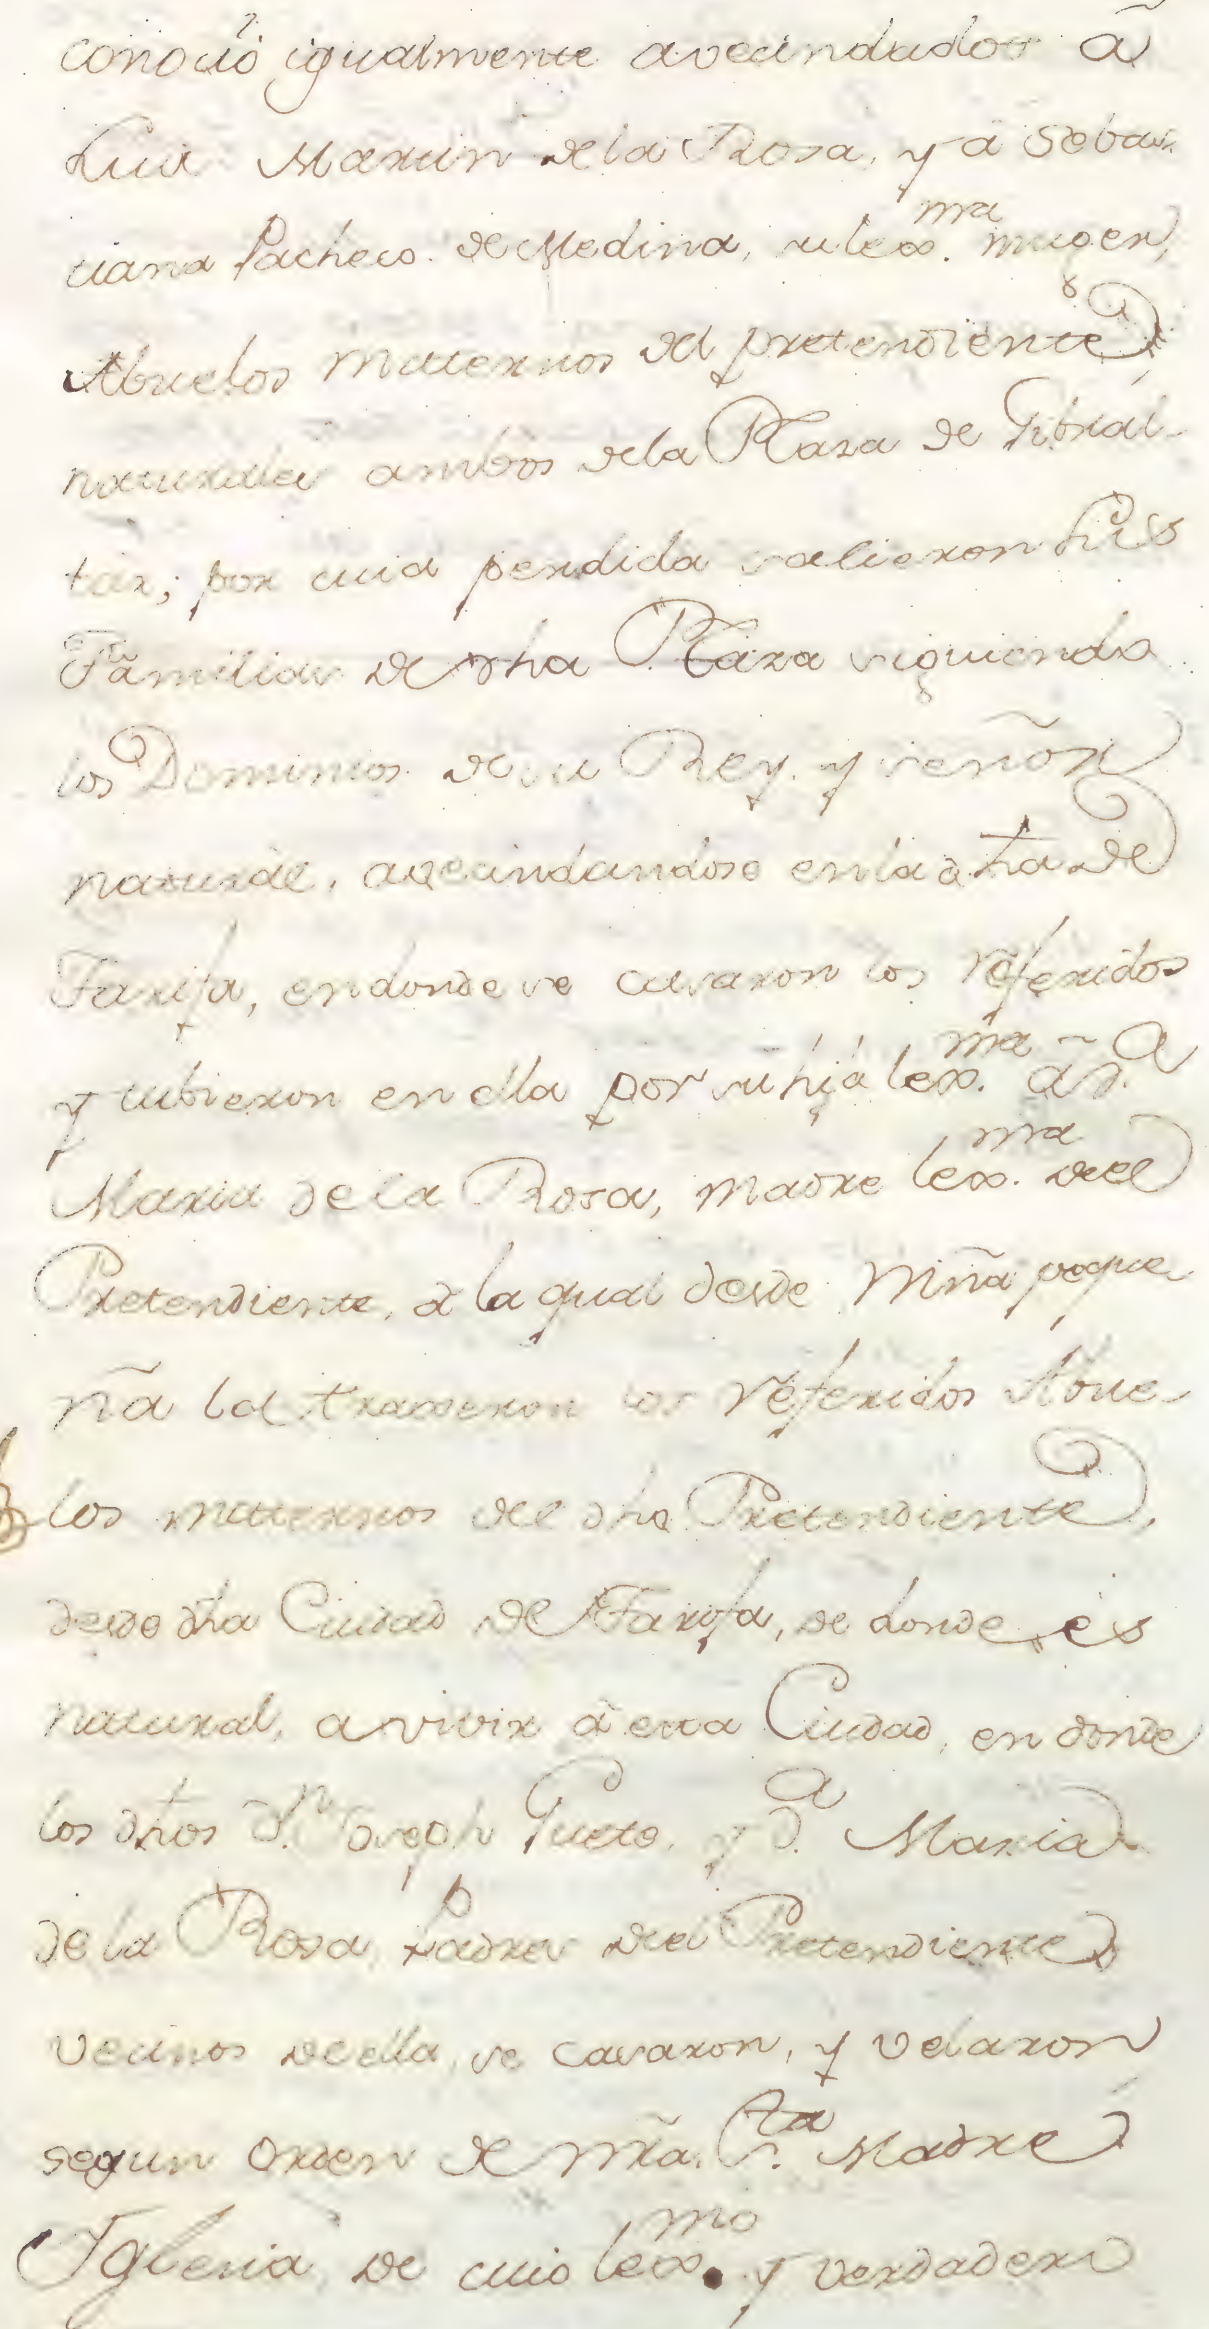 conoció igualmente avecindados â
Luis Martin de la Rosa, y â Sebas-
tiana Pacheco de Medina, su lexma. muger,
Abuelos Maternos del pretendiente,
naturales ambos de la Plaza de Gibral-
tar; por cuia perdida salieron sus
Familias de dha Plaza siguiendo
los Dominios de su Rey, y señor
natural, avecindandose en la dha de
Tarifa, en donde se casaron los referidos
y tubieron en ella por su hija lexma. â Da.
Maria de la Rosa, madre lexma. del
Pretendiente, â la qual desde Niña peque-
ña la traxeron los referidos Abue-
los maternos del dho Pretendiente,
desde dha Ciudad de Tarifa, de donde és
natural, a vivir â esta Ciudad, en donde
los dhos Dn. Joseph Gueto, y Da. Maria
de la Rosa, Padres del Pretendiente
vecinos de ella, se casaron, y velaron
segun Orden de nrã. Sta. Madre
Yglesia, de cuio lexmo. y verdadero